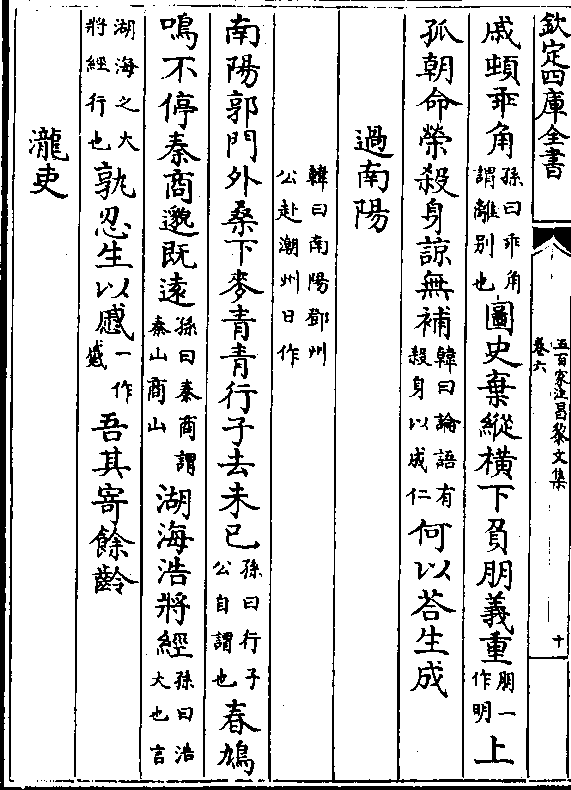 欽定四庫全書
五百家注昌黎文集
卷六
十
戚頓乖角孫曰乖角謂離别也圖史棄縱橫下負朋義重朋一作明上
孤朝命榮殺身諒無補韓曰論語有殺身以成仁何以荅生成
過南陽韓曰南陽鄧州公赴潮州日作
南陽郭門外桑下麥青青行子去未已孫曰行子公自謂也春鳩
鳴不停秦商邈既遠孫曰秦商謂秦山商山湖海浩將經孫曰浩大也言
湖海之大將經行也孰忍生以慼一作慽吾其寄餘齡
瀧吏